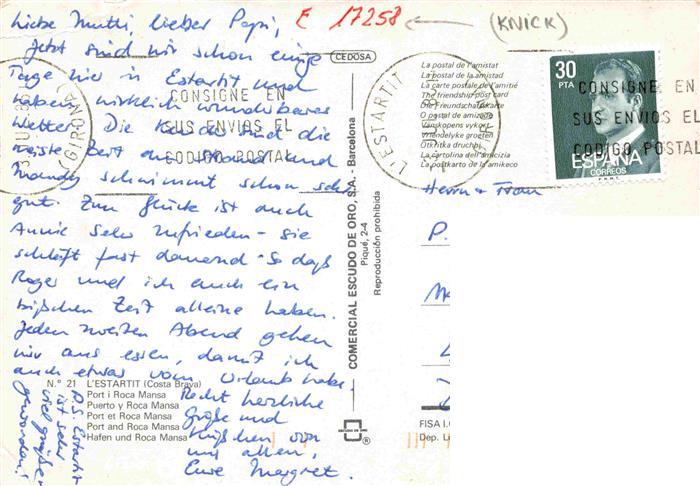 Liebe Mutti, lieber Papi,
Jetzt sind wir schon einige
Tage hier in Estartit und
haben wirklich wunderbares
Wetter. Die Kinder sind die
meiste Zeit am Strand und
Mandy schwimmt schon sehr
gut. Zum Glück ist auch
Annie sehr zufrieden - sie
schläft fast dauernd. So daß
Roger und ich auch ein
bißchen Zeit alleine haben.
Jeden zweiten Abend gehen
wir aus essen, damit ich
auch etwas vom Urlaub habe.
Recht herzliche
Grüße und
Küßchen von
uns allen,
Eure Margret.
P.S. Estartit
ist sehr
viel größer
geworden!
N.° 21 L'ESTARTIT (Costa Brava)
Port i Roca Mansa
Puerto y Roca Mansa
Port et Roca Mansa
Port and Roca Mansa
Hafen und Roca Mansa
E 17258
(KNICK)
CEDOSA
COMERCIAL ESCUDO DE ORO, S.A. - Barcelona
Piqué, 2-4
Reproducción prohibida
ESCUDO DE ORO
®
La postal de l'amistat
La postal de la amistad
La carte postale de l'amitié
The friendship post card
Die Freundschaftskarte
O postal de amizade
Vanskopens vykort
Vriendelyke groeten
Otkritka druzhbi
La cartolina dell'amicizia
La postkarto de la amikeco
(GIRONA)
CONSIGNE EN
SUS ENVIOS EL
CODIGO POSTAL
L'ESTARTIT
CONSIGNE EN
SUS ENVIOS EL
CODIGO POSTAL
30
PTA
ESPAÑA
CORREOS
F.N.M.T.
Herrn + Frau
P.
FISA I.
Dep. L